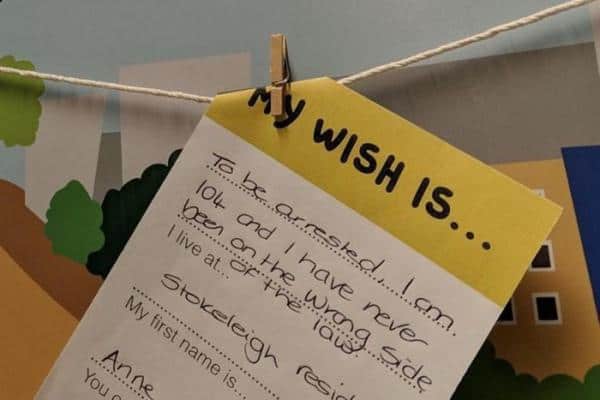 MY WISH IS...
To be arrested. I am
104 and I have never
been on the wrong side
of the law
I live at...
Stokeleigh resid
My first name is...
Anne
You c